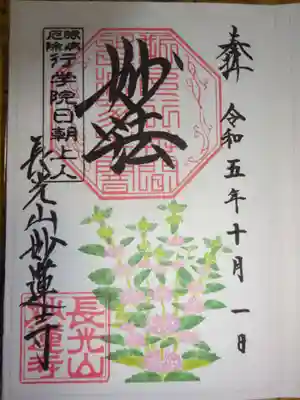 奉拝
令和五年十月一日
妙法
眼病
厄除
行学院日朝上人
長光山妙蓮寺
長光山
妙蓮寺